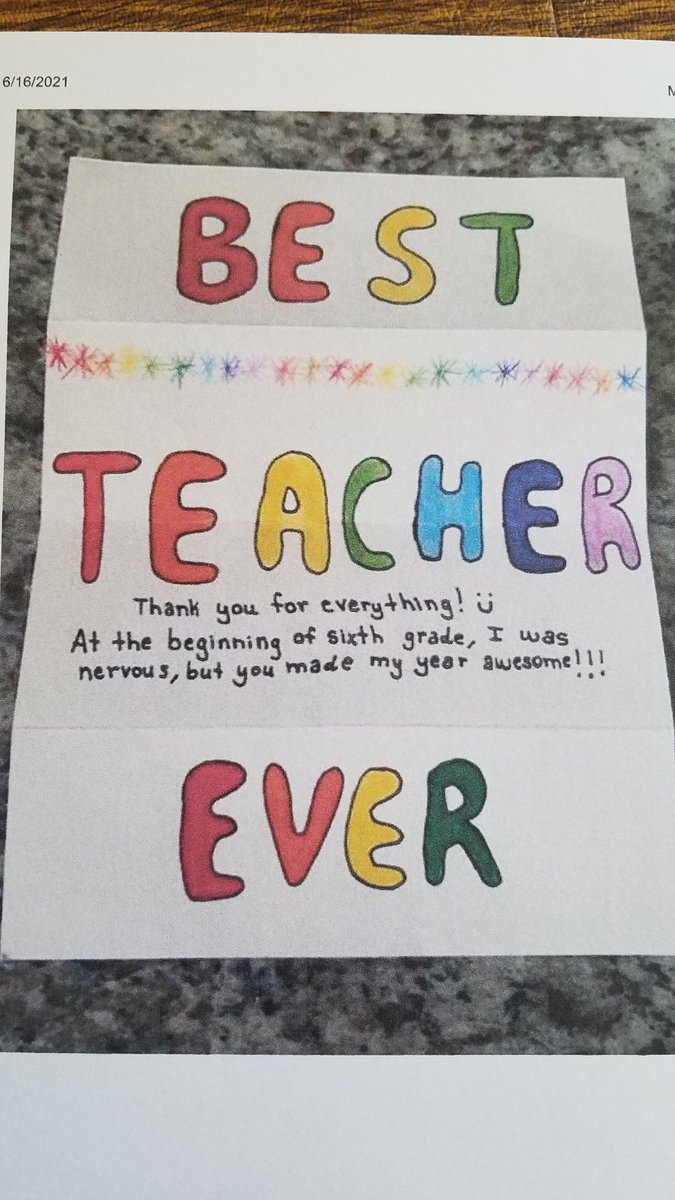 6/16/2021
M
BEST
TEACHER
Thank you for everything! ü
At the beginning of sixth grade, I was
nervous, but you made my year awesome!!!
EVER